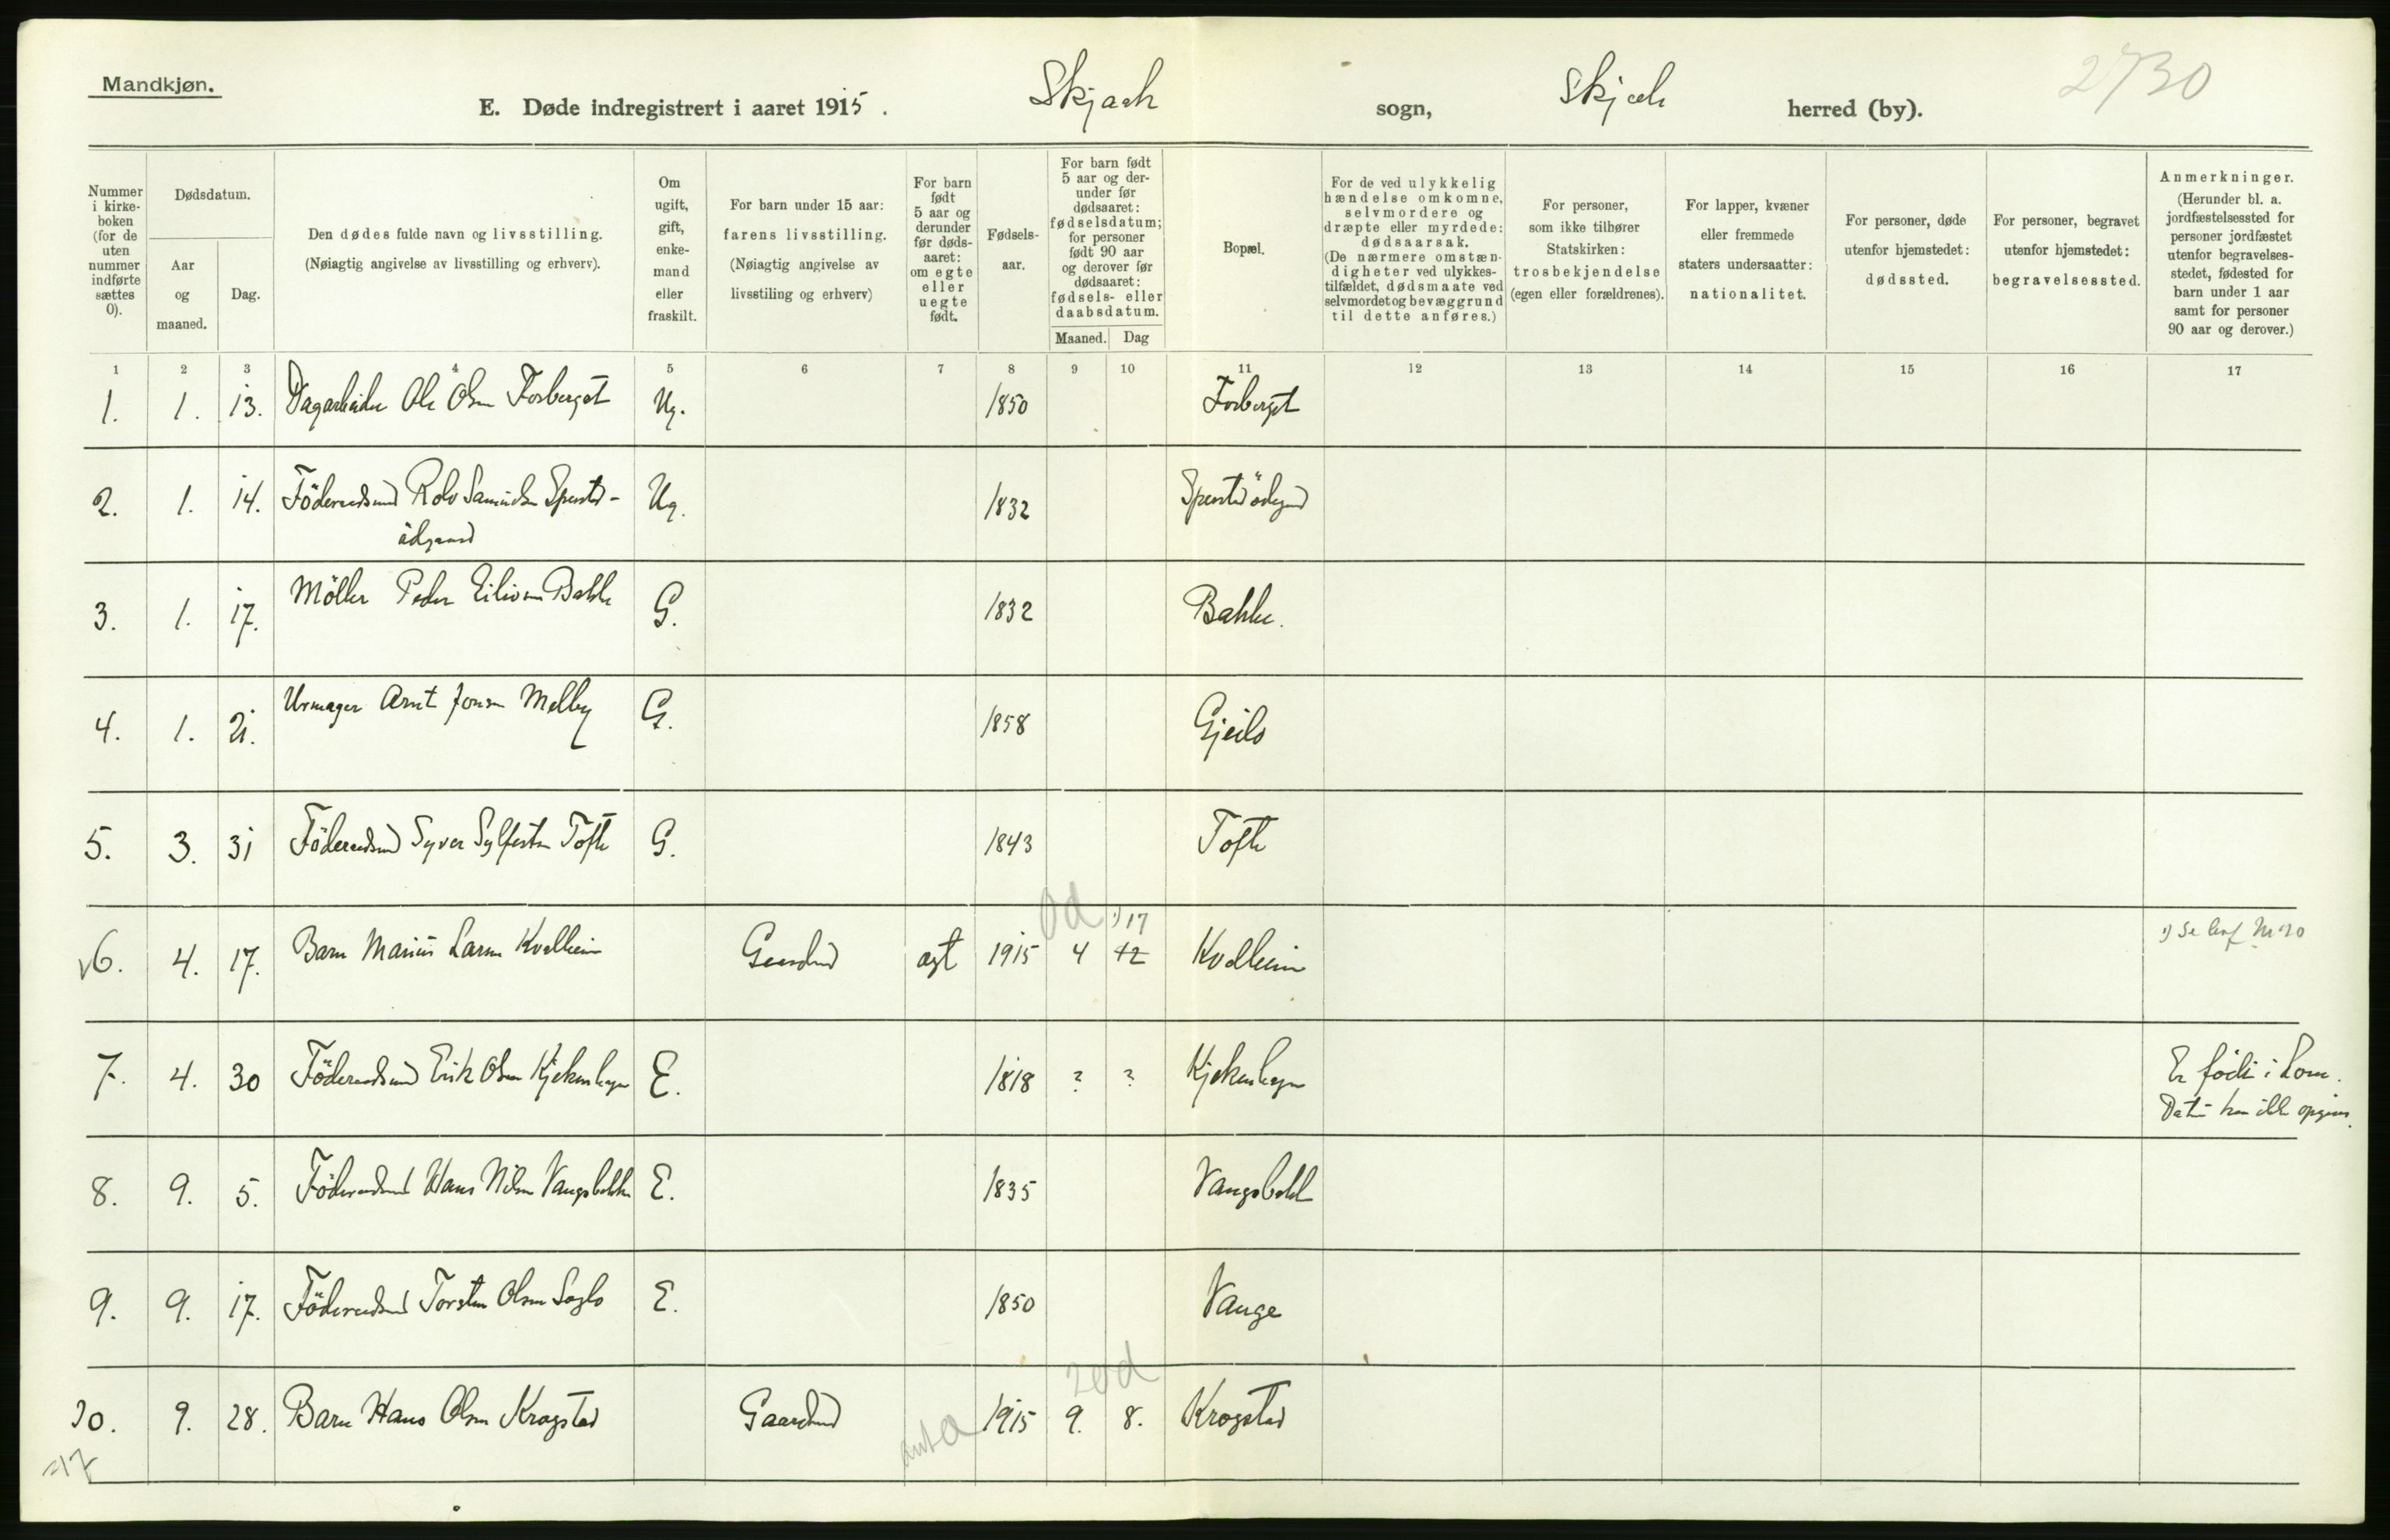 Mandkjøn.
E. Døde indregistrert i aaret 1915. Skjaak sogn, Skjak herred (by). 2730
Nummer i kirkeboken (for de uten nummer indførte sættes 0).
Dødsdatum.
Aar og maaned.
Dag.
Den dødes fulde navn og livsstilling.
(Nøiagtig angivelse av livsstilling og erhverv).
Om ugift, gift, enkemand eller fraskilt.
For barn under 15 aar: farens livsstilling. (Nøiagtig angivelse av livsstiling og erhverv)
For barn født 5 aar og derunder før dødsaaret: om egte eller uegte født.
Fødselsaar.
For barn født 5 aar og derunder før dødsaaret: fødselsdatum; for personer født 90 aar og derover før dødsaaret: fødsels- eller daabsdatum.
Maaned. Dag
Bopæl.
For de ved ulykkelig hændelse omkomne, selvmordere og dræpte eller myrdede: dødsaarsak. (De nærmere omstændigheter ved ulykkestilfældet, dødsmaate ved selvmordet og bevæggrund til dette anføres.)
For personer, som ikke tilhører Statskirken: trosbekjendelse (egen eller forældrenes).
For lapper, kvæner eller fremmede staters undersaatter: nationalitet.
For personer, døde utenfor hjemstedet: dødssted.
For personer, begravet utenfor hjemstedet: begravelsessted.
Anmerkninger. (Herunder bl. a. jordfæstelsessted for personer jordfæstet utenfor begravelsesstedet, fødested for barn under 1 aar samt for personer 90 aar og derover.)
1 2 3 4 5 6 7 8 9 10 11 12 13 14 15 16 17
1. 1. 13. Dagarbeider Ole Olsen Forberget Ug. 1850 Forberget
2. 1. 14. Föderaadsmand Rolv Samuelsen Sperstad- Ug. 1832
3. 1. 17. Möller Peder Eilivsen Bakke G. 1832 Bakke.
4. 1. 21. Urmager Arnt Jonsen Melby G. 1858 Gjeilo
5. 3. 31 Föderaadsmand Syver Sylfestsen Tofte G. 1843 Tofte
0d
v6. 4. 17. Barn Marius Larsen Kvellheim Gaardmd ægt 1915 4 12 1) 17 Kvellheim 1) Se
7. 4. 30 Föderaadsmand Erik Olsen Kjekenhagen E. 1818 ? ? Kjekenhagen Er født i Lom.
Dato kan ikke opgives.
8. 9. 5. Föderaadsmand Hans Nilsen Vangsbakken E. 1835
9. 9. 17. Föderaadsmand Torsten Olsen E. 1850 Vange
20d
10. 9. 28. Barn Hans Olsen Krogstad Gaardmd 1915 9. 8. Krogstad
=17